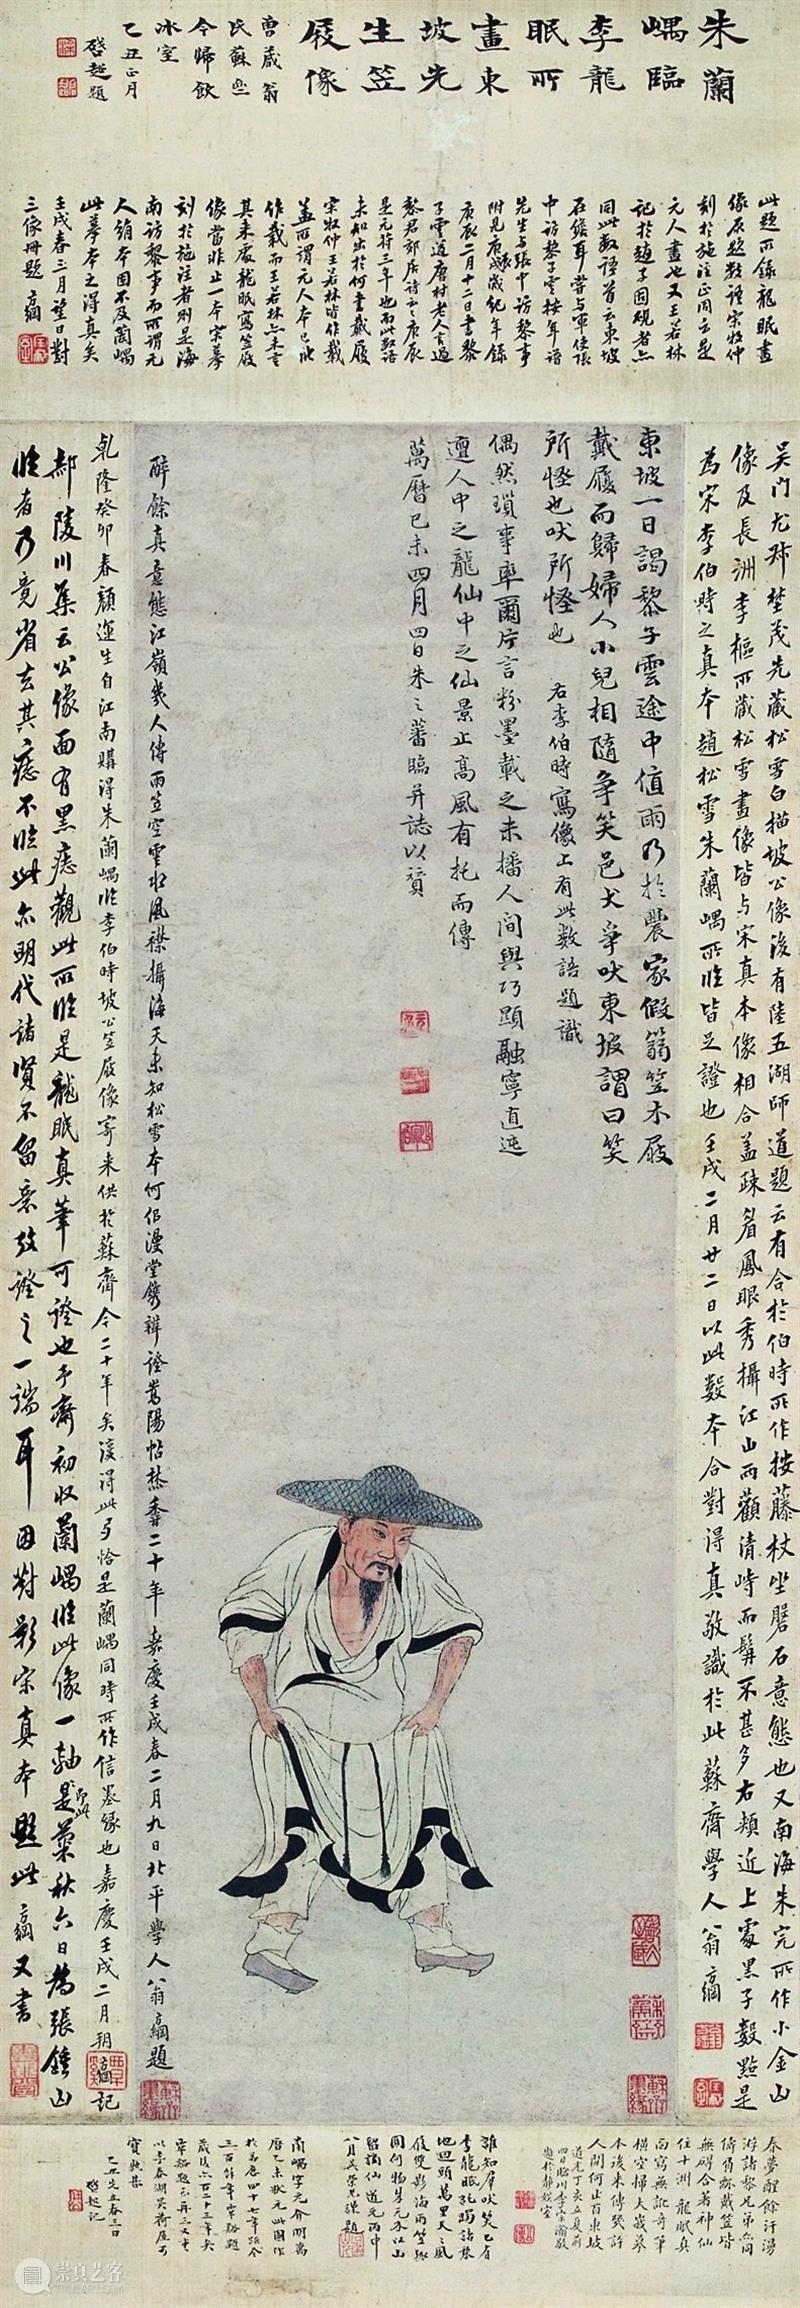 朱蘭
嵎臨
李龍
眠所
畫東
坡先
生笠
屐像
曾藏翁
氏蘇齋
今歸飲
冰室
乙丑正月
啓超題
此題所錄龍眠畫
像原題數語宋牧仲
刻於施注正同云是
元人畫也又王若林
記於趙子固硯者亦
同此數語首云東坡
在儋耳嘗與軍使張
中訪黎子雲按年譜
先生與張中訪黎事
附見庚辰歲紀年錄
庚辰二月十二日書黎
子雲道唐村老人言過
黎君郊居詩云云庚辰
是元符三年也而此數語
未知出於何書戴屐
宋牧仲王若林皆作載
蓋所謂元人本已訛
作載而王若林亦未言
其來處龍眠寫笠屐
像當非止一本宋摹
刻於施注者則是海
南訪黎事而所謂元
人銷本固不及蘭嵎
此摹本之得真矣
壬戌春三月望日對
三像冊題 綱
吳門尤叔埜茂先藏松雪白描坡公像後有陸五湖師道題云有合於伯時所作按藤杖坐磐石意態也又南海朱完所作小金山
像及長洲李樞所藏松雪畫像皆與宋真本像相合蓋疎眉鳳眼秀攝江山兩顴清峙而髯不甚多右頰近上處黑子數點是
為宋李伯時之真本趙松雪朱蘭嵎所臨皆足證也壬戌二月廿二日以此數本合對得真敬識於此蘇齋學人翁方綱
東坡一日謁黎子雲途中值雨乃於農家假篛笠木屐
戴履而歸婦人小兒相隨爭笑邑犬爭吠東坡謂曰笑
所怪也吠所怪也 右李伯時寫像上有此數語題識
偶然瑣事率爾片言粉墨載之末播人間與巧顯融寧直迍
邅人中之龍仙中之仙景止高風有托而傳
萬曆己未四月四日朱之蕃臨并誌以贊
醉餘真意態江嶺幾人傳雨笠空雲水風襟攝海天未知松雪本何似漫堂鐫辨證嵩陽帖焚香二十年嘉慶壬戌春二月九日北平學人翁方綱題
乾隆癸卯春顏運生自江南購得朱蘭嵎臨李伯時坡公笠屐像寄來供於蘇齋今二十年矣後得此乃恰是蘭嵎同時所作信墨緣也嘉慶壬戌二月朔方綱記
郝陵川集云公像面有黑痣觀此所臨是龍眠真筆可證也予齋初收蘭嵎臨此像一軸是菊秋六日為張鍾山
臨者乃竟省去其痣不臨此亦明代諸賢不留意攷證之一端耳因對影宋真本題此 綱又書
春夢醒餘汗漫
游諸黎兄弟亦同
儔偶緣戴笠皆
無碍合著神仙
住十洲 龍眠真
面寫無訛奇筆
橫空掃大峩摹
本後來傳幾許
人間何止百東坡
道光丁亥立夏前
四日臨川李宗瀚敬
題於靜娛室
誰知群吠笑已有
李龍眠孔躅諸葵
地回頭萬里天天風
屐雙影海雨笠孤
圓何物朱元介江山
招謫仙 道光丙申
八月吳榮光謹題
蘭嵎字元介明萬
曆乙未狀元此圖作
於萬曆四十七年距今
三百餘年
乙丑先立春二日
啓超記